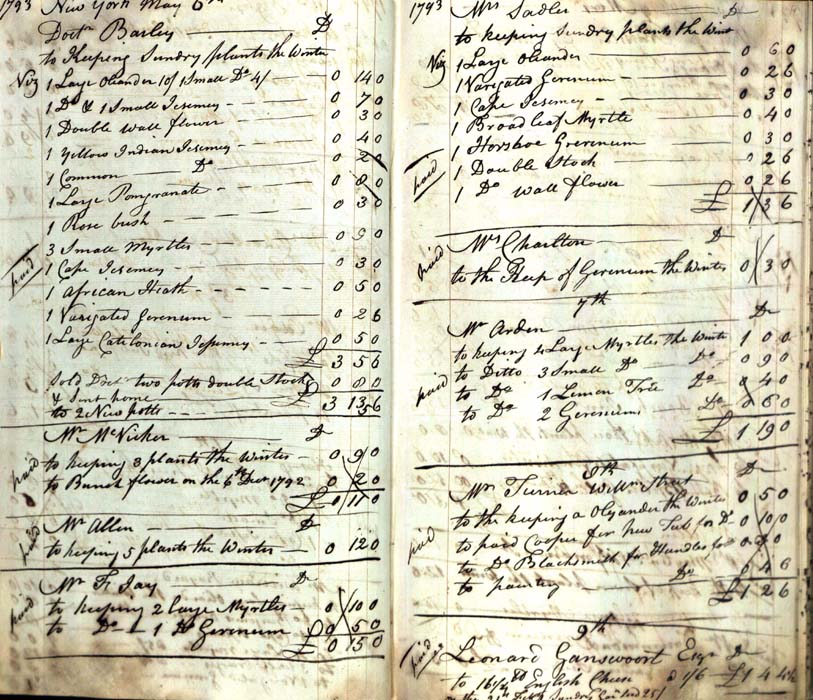 1793 New York May 6th
Doctr Bailey — Dr
to Keeping Sundry plants the Winter
Viz 1 Large Oleander 10/ 1 Small Do 4/ — 0 14 0
1 Do & 1 Small Jesemey — 0 7 0
1 Double Wall flower — 0 3 0
1 Yellow Indian Jesemey — 0 4 0
1 Common — Do — 0 2 0
1 Large Pomgranate — 0 8 0
1 Rose bush — 0 3 0
3 Small Myrtles — 0 9 0
paid 1 Cape Jesemey — 0 3 0
1 African Heath — 0 5 0
1 Varigated Gerenium — 0 2 6
1 Large Catelonian Jessemey — 0 5 0
£ 3 5 6
Sold Doctr two potts double Stocks 0 8 0
& Sent home £ 3 13 6
to 2 New potts —
Mr McVicker — Dr
paid to keeping 3 plants the Winter — 0 9 0
to Bunch flower on the 6th Decr 1792 0 2 0
£ 0 11 0
Mr Allen — Dr
paid to keeping 5 plants the Winter — 0 12 0
Mr Fr Jay — Dr
paid to keeping 2 Large Myrtles — 0 10 0
to Do — 1 Do Gerenium 0 5 0
£ 0 15 0
1793 Mrs Sadler — Dr
to keeping Sundry plants the Wint
Viz 1 Large Oleander — 0 6 0
1 Varigated Gerenium — 0 2 6
1 Cape Jesemey — 0 3 0
1 Broad leaf Myrtle 0 4 0
1 Horshoe Gerenium 0 3 0
paid 1 Double Stock 0 2 6
1 Do Wall flower — 0 2 6
£ 1 3 6
Mrs Charlton — Dr
paid to the Keep of Gerenium the Winter 0 3 0
7th
Mr Arden — Dr
to keeping 4 Large Myrtles the Winte 1 0 0
to Ditto 3 Small Do — Do — 0 9 0
paid to Do 1 Lemon Tree Do — 0 4 0
to Do 2 Gereniums — Do — 0 6 0
£ 1 19 0
8th
Mr Turner Willm Street Dr
to the keeping a Olyander the Winter 0 5 0
to paid Cooper for New Tub for Do 0 10 0
paid to Do Blacksmith for Handles for
to painting — Do —
£ 1 2 6
9th
paid Leonard Ganswoort Esqr Dr
to 16 1/4 lb English Cheese a 1/6 — £ 1 4 4½